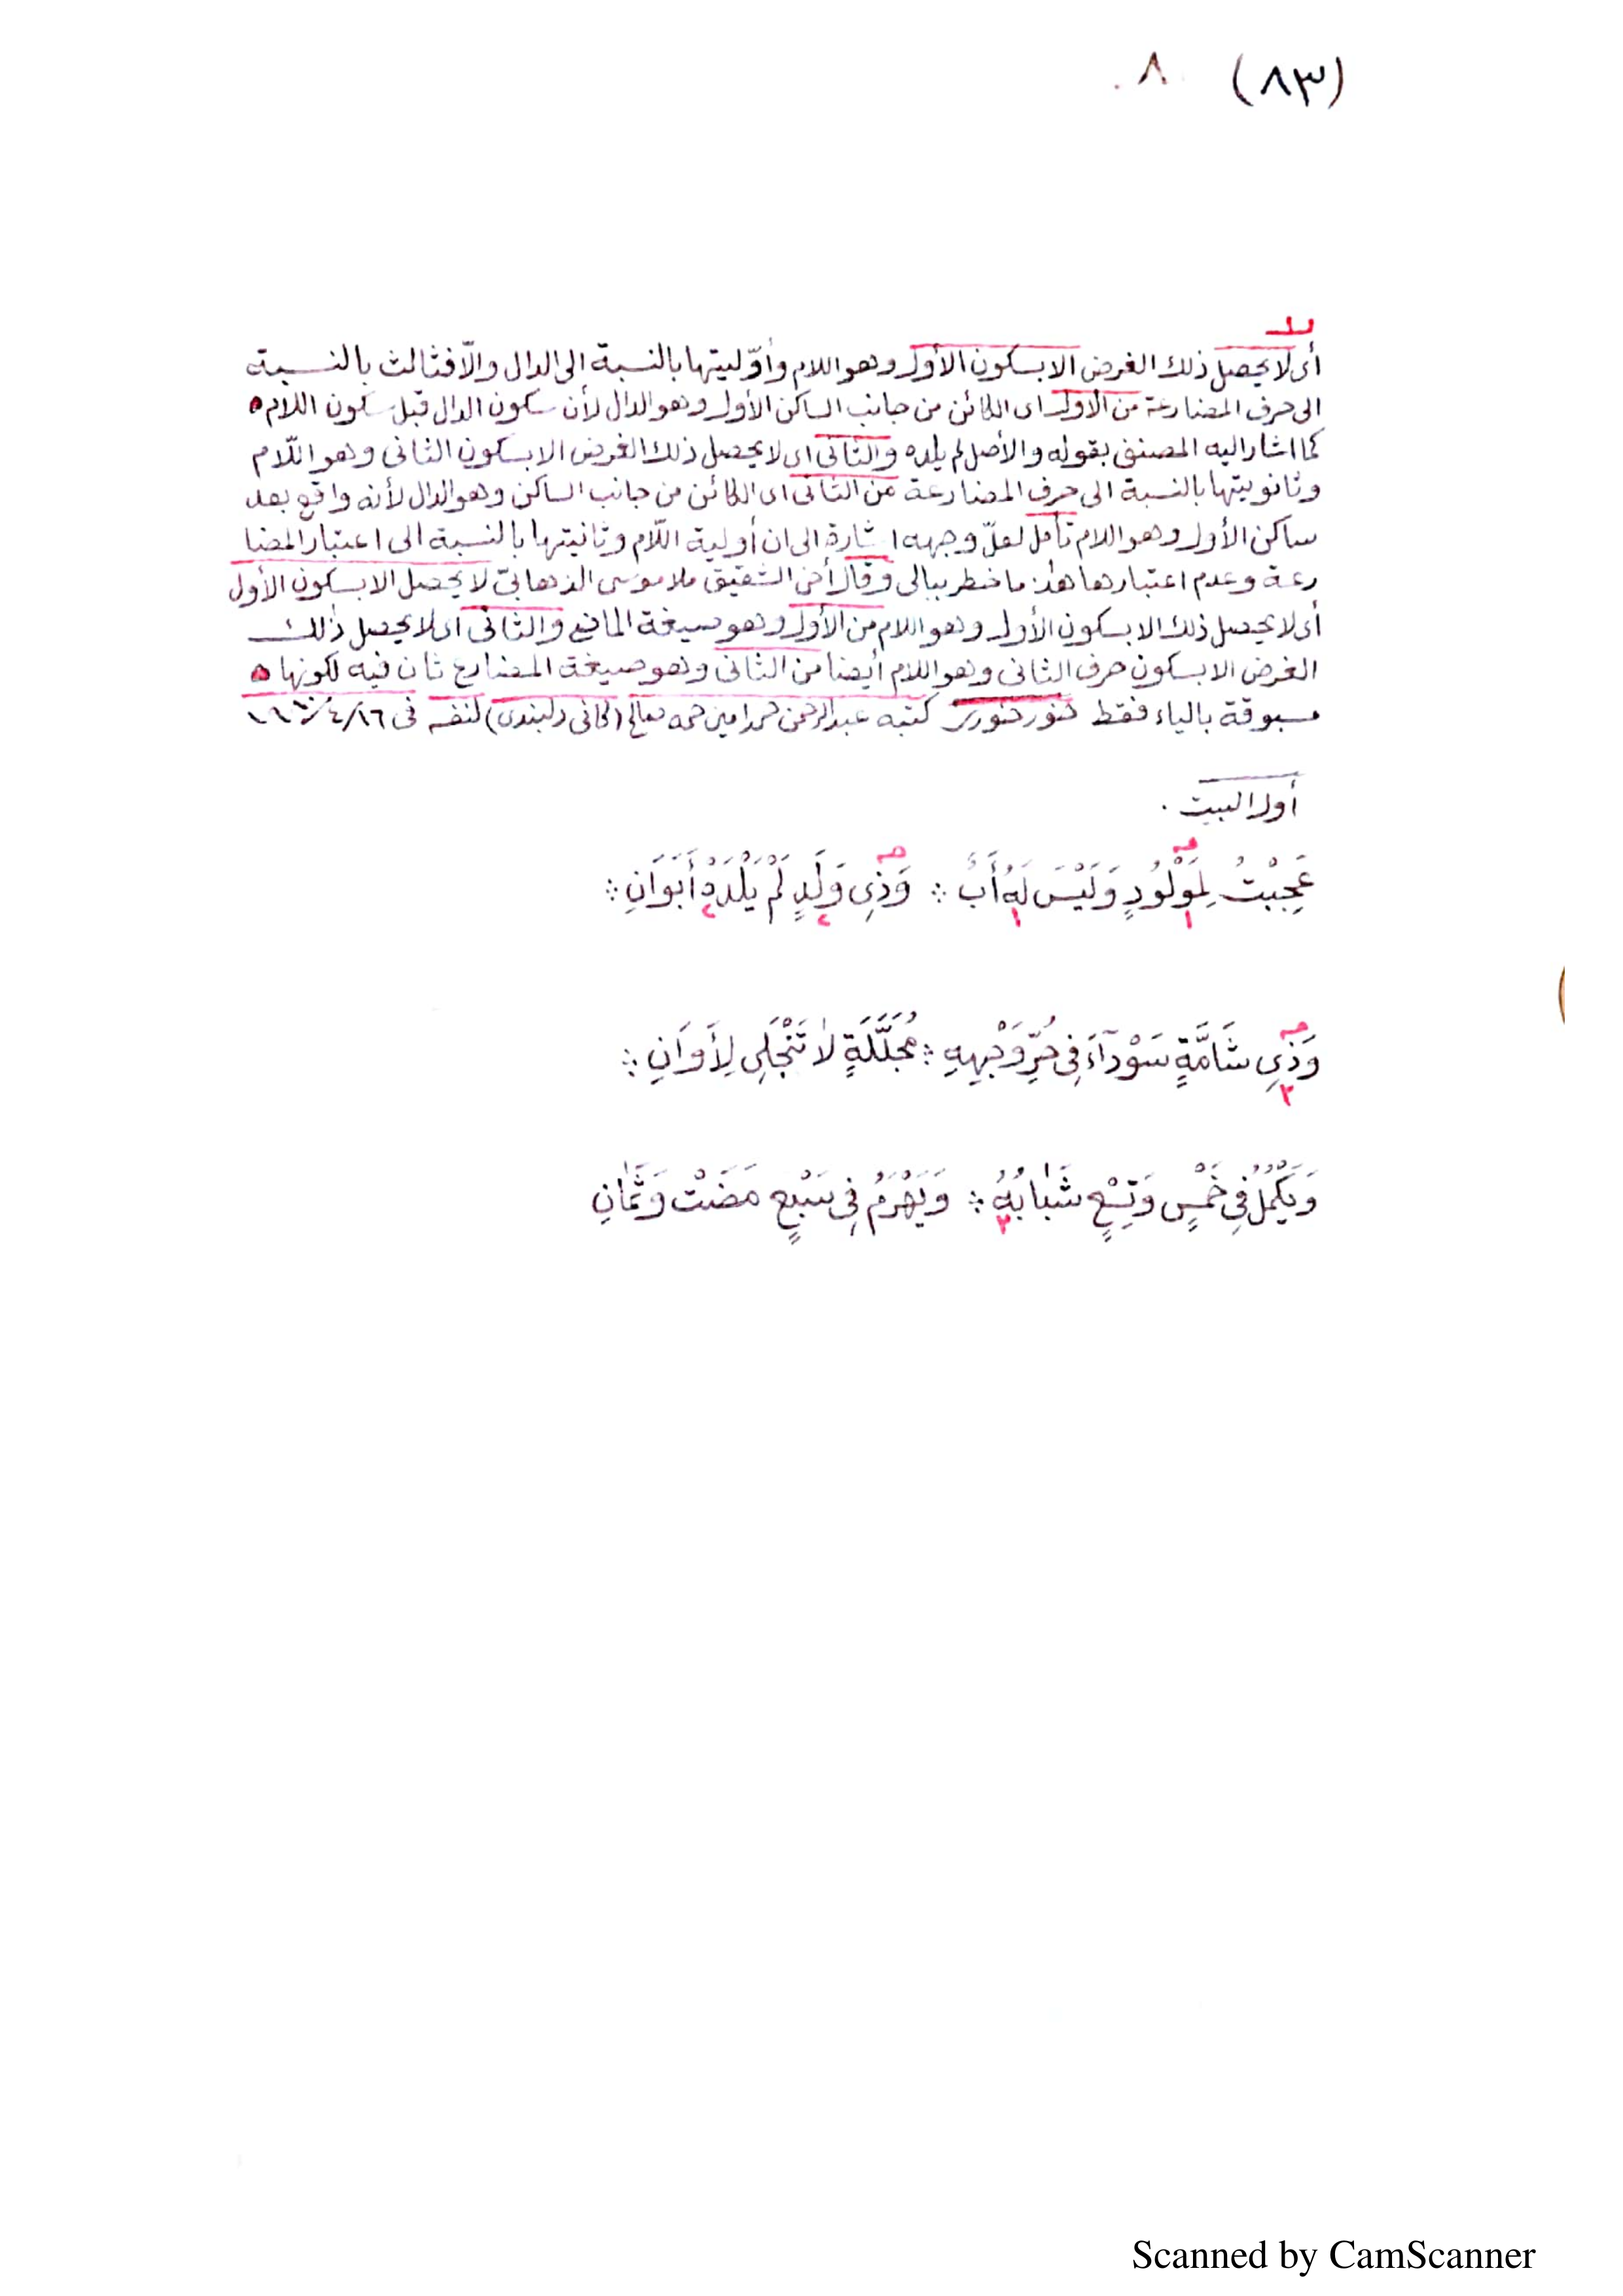 (٨٣) ٨.
أى لا يحصل ذلك الغرض الا بسكون الأول وهو اللام وأوّليتها بالنسبة الى الدال والّا فثالث بالنسبة
الى حرف المضارعة من الاول اى الكائن من جانب الساكن الأول وهو الدال لأن سكون الدال قبل سكون اللام ٥
كما اشار اليه المصنف بقوله والأصل لم يلده والثانى اى لا يحصل ذلك الغرض الا بسكون الثانى وهو اللّام
وثانويتها بالنسبة الى حرف المضارعة من الثانى اى الكائن من جانب الساكن وهو الدال لأنه واقع بعد
ساكن الأول وهو اللام تأمل لعلّ وجهه اشارة الى ان أولية اللّام وثانيتها بالنسبة الى اعتبار المضا
رعة وعدم اعتبارها هذا ما خطر ببالى وقال أخى الشقيق ملا موسى الذهابىّ لا يحصل الا بسكون الأول
أى لا يحصل ذلك الا بسكون الأول وهو اللام من الأول وهو صيغة الماضى والثانى اى لا يحصل ذٰلك
الغرض الا بسكون حرف الثانى وهو اللام أيضا من الثانى وهو صيغة المضارع ثان فيه لكونها ٥
مسبوقة بالياء فقط كتبه عبدالرحمن محمد امين حمه صالح (كانى دلبندى) لنفسه فى ١٦/٤/
أول البيت .
عَجِبْتُ لِمَوْلُودٍ وَلَيْسَ لَهُ أَبٌ ∴ وَذِى وَلَدٍ لَمْ يَلْدَهْ أَبَوَانِ ∴
وَذِى شَامَّةٍ سَوْدآءَ فِى حُرِّ وَجْهِهِ ∴ مُجَلَّلَةٍ لاٰ تَنْجَلِى لِأَوَانِ ∴
وَيَكْمُلُ فِى خَمْسٍ وَتِسْعٍ شَبٰابُهُ ∴ وَيَهْرَمُ فِى سَبْعٍ مَضَتْ وَثَمٰانِ
Scanned by CamScanner